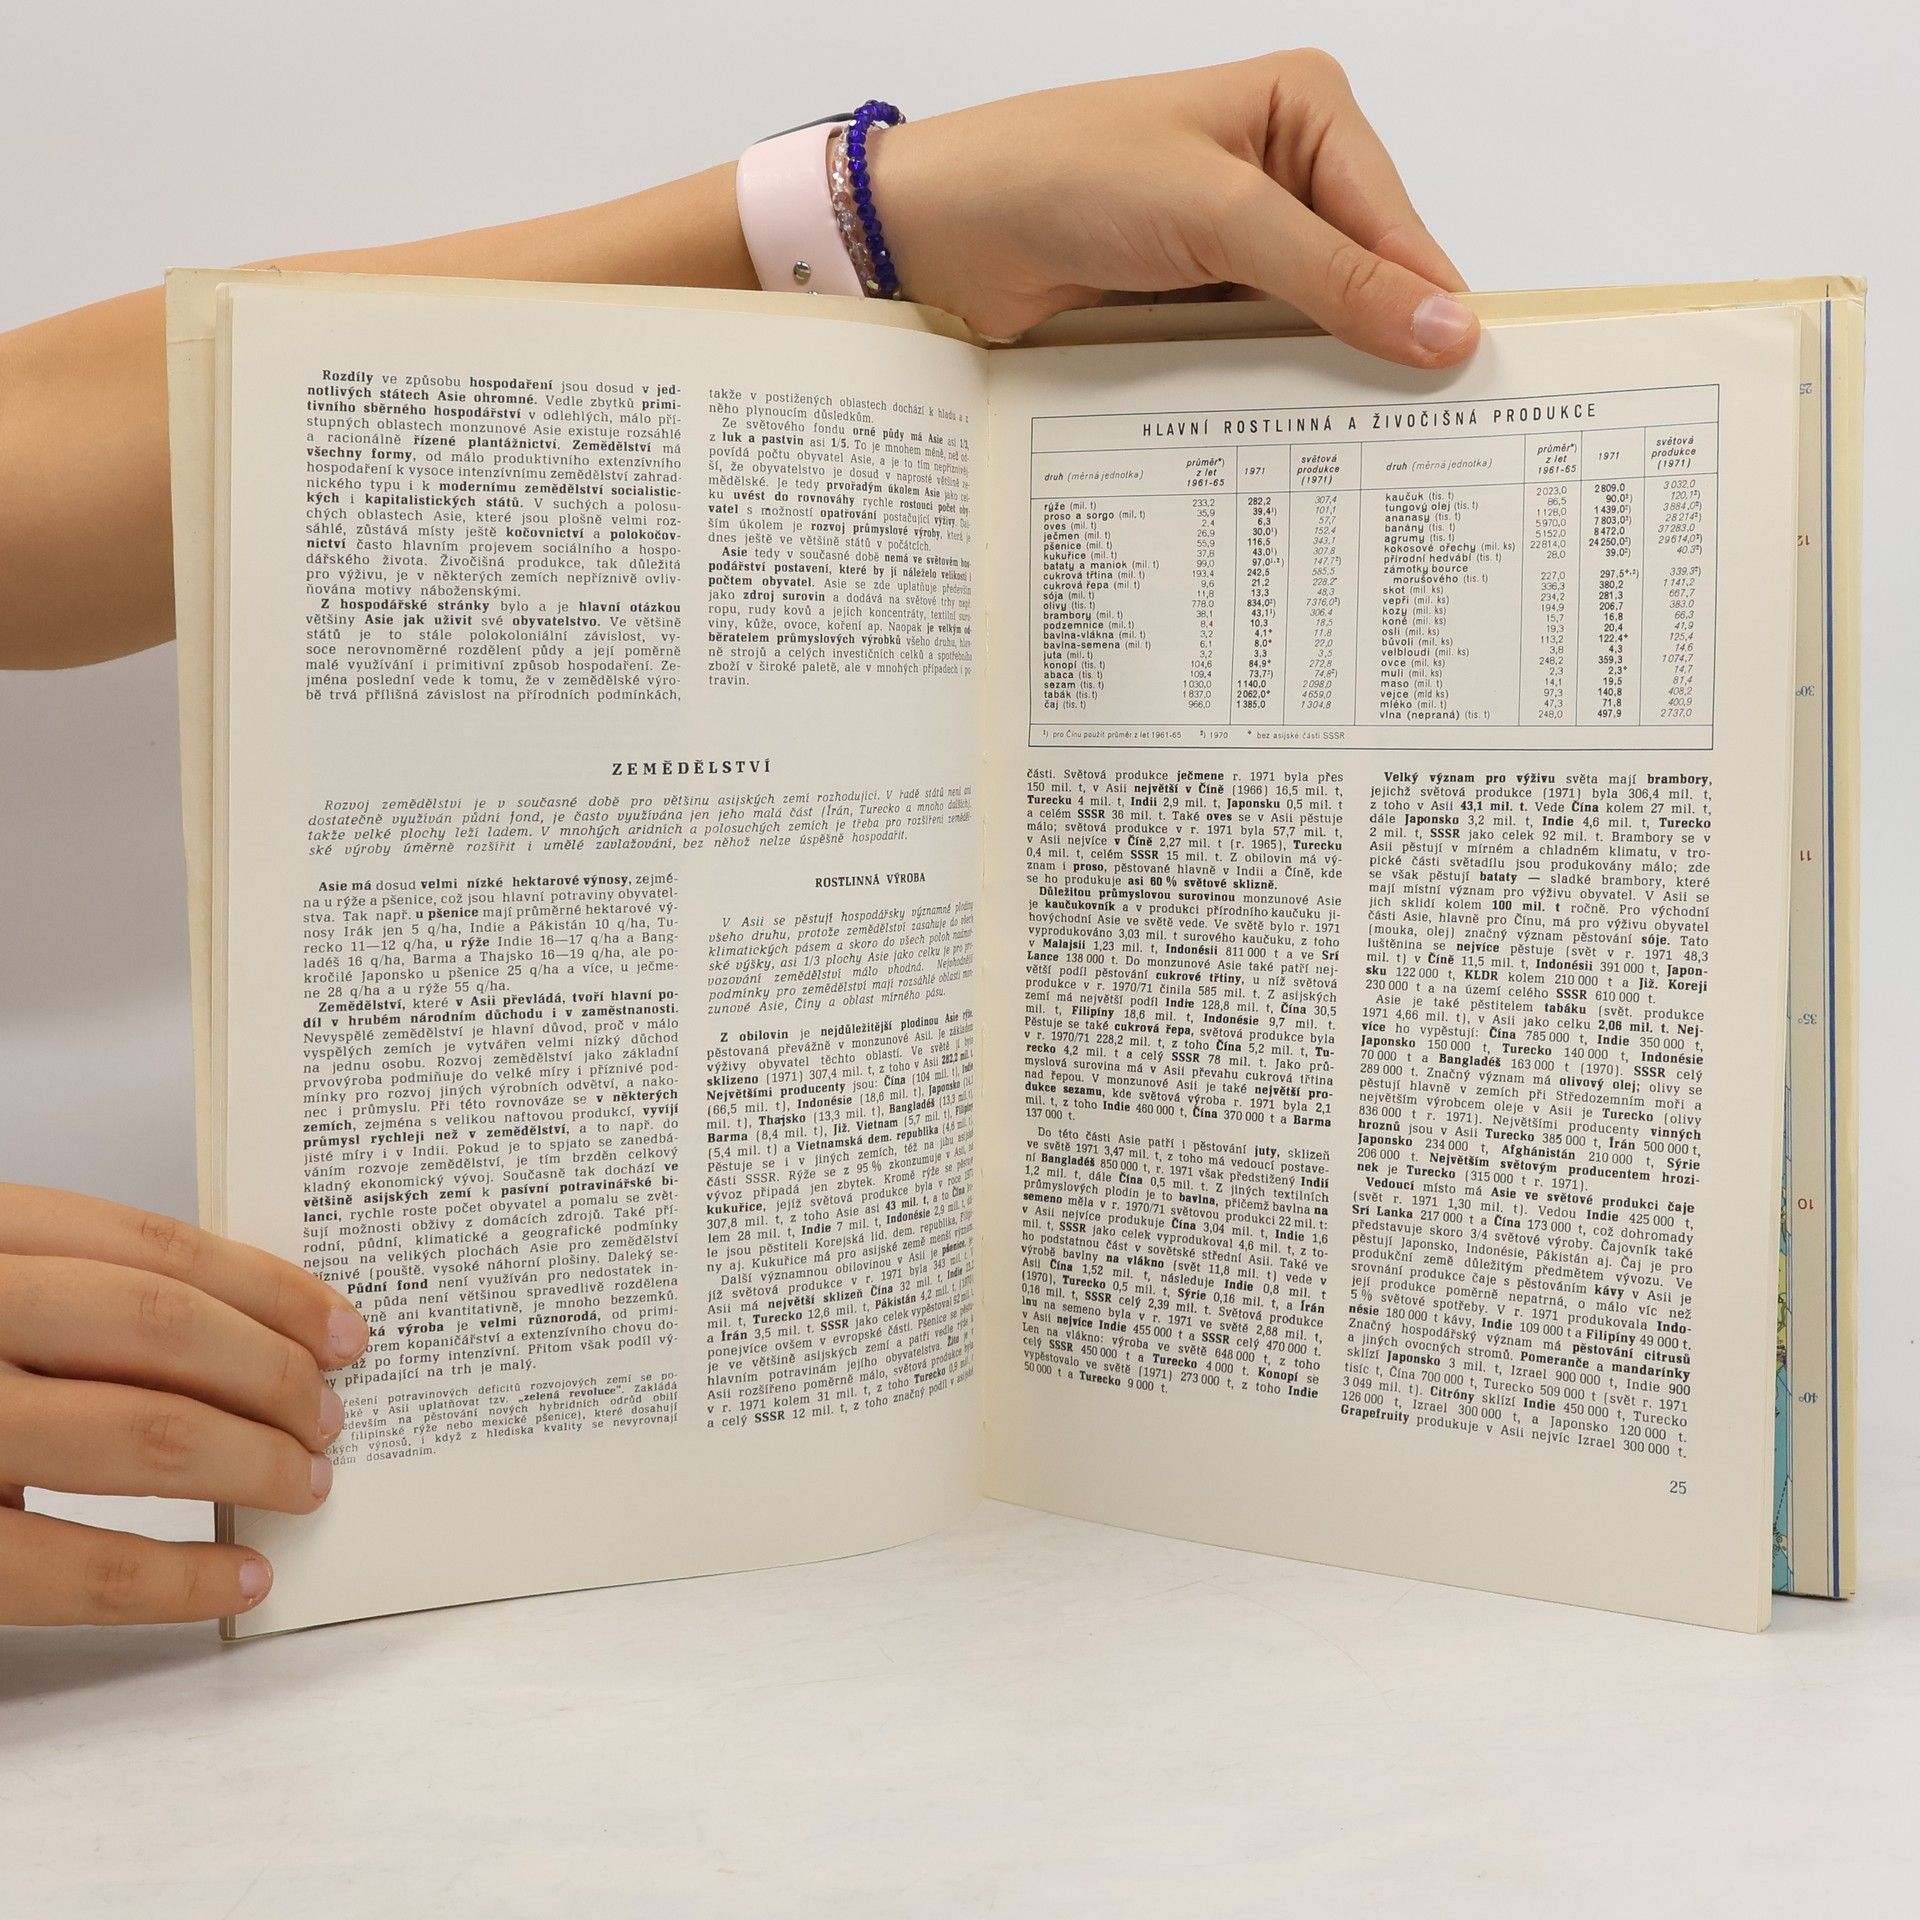 Rozdíly ve způsobu hospodaření jsou dosud v jed-
notlivých státech Asie ohromné. Vedle zbytků primi-
tivního sběrného hospodářství v odlehlých, málo pří-
stupných oblastech monzunové Asie existuje rozsáhlé
a racionálně řízené plantážnictví. Zemědělství má
všechny formy, od málo produktivního extenzívního
hospodaření k vysoce intenzívnímu zemědělství zahrad-
nického typu i k modernímu zemědělství socialistic-
kých i kapitalistických států. V suchých a polosu-
chých oblastech Asie, které jsou plošně velmi roz-
sáhlé, zůstává místy ještě kočovnictví a polokočov-
nictví často hlavním projevem sociálního a hospo-
dářského života. Živočišná produkce, tak důležitá
pro výživu, je v některých zemích nepříznivě ovliv-
ňována motivy náboženskými.
Z hospodářské stránky bylo a je hlavní otázkou
většiny Asie jak uživit své obyvatelstvo. Ve většině
států je to stále polokoloniální závislost, vy-
soce nerovnoměrné rozdělení půdy a její poměrně
malé využívání i primitivní způsob hospodaření. Ze-
jména poslední vede k tomu, že v zemědělské výro-
bě trvá přílišná závislost na přírodních podmínkách,
takže v postižených oblastech dochází k hladu a z
něho plynoucím důsledkům.
Ze světového fondu orné půdy má Asie asi 1/3,
z luk a pastvin asi 1/5. To je mnohem méně, než od-
povídá počtu obyvatel Asie, a je to tím nepřízniví-
ší, že obyvatelstvo je dosud v naprosté většině ze-
mědělské. Je tedy prvořadým úkolem Asie jako cel-
ku uvést do rovnováhy rychle rostoucí počet oby-
vatel s možností opatřování postačující výživy. Dal-
ším úkolem je rozvoj průmyslové výroby, která je
dnes ještě ve většině států v počátcích.
Asie tedy v současné době nemá ve světovém hos-
podářství postavení, které by jí náleželo velikostí i
počtem obyvatel. Asie se zde uplatňuje především
jako zdroj surovin a dodává na světové trhy např.
ropu, rudy kovů a jejich koncentráty, textilní suro-
viny, kůže, ovoce, koření ap. Naopak je velkým od-
běratelem průmyslových výrobků všeho druhu, hlav-
ně strojů a celých investičních celků a spotřebního
zboží v široké paletě, ale v mnohých případech i po-
travin.
ZEMĚDĚLSTVÍ
Rozvoj zemědělství je v současné době pro většinu asijských zemí rozhodující. V řadě států není ani
dostatečně využíván půdní fond, je často využívána jen jeho malá část (Írán, Turecko a mnoho dalších),
takže velké plochy leží ladem. V mnohých aridních a polosuchých zemích je třeba pro rozšíření zeměděl-
ské výroby úměrně rozšířit i umělé zavlažování, bez něhož nelze úspěšně hospodařit.
Asie má dosud velmi nízké hektarové výnosy, zejmé-
na u rýže a pšenice, což jsou hlavní potraviny obyvatel-
stva. Tak např. u pšenice mají průměrné hektarové vý-
nosy Irák jen 5 q/ha, Indie a Pákistán 10 q/ha, Tu-
recko 11—12 q/ha, u rýže Indie 16—17 q/ha a Bang-
ladéš 16 q/ha, Barma a Thajsko 16—19 q/ha, ale po-
kročilé Japonsko u pšenice 25 q/ha a více, u ječme-
ne 28 q/ha a u rýže 55 q/ha.
Zemědělství, které v Asii převládá, tvoří hlavní po-
díl v hrubém národním důchodu i v zaměstnanosti.
Nevyspělé zemědělství je hlavní důvod, proč v málo
vyspělých zemích je vytvářen velmi nízký důchod
na jednu osobu. Rozvoj zemědělství jako základní
prvovýroba podmiňuje do velké míry i příznivé pod-
mínky pro rozvoj jiných výrobních odvětví, a nako-
nec i průmyslu. Při této rovnováze se v některých
zemích, zejména s velikou naftovou produkcí, vyvíjí
průmysl rychleji než v zemědělství, a to např. do
jisté míry i v Indii. Pokud je to spjato se zanedbá-
váním rozvoje zemědělství, je tím brzděn celkový
kladný ekonomický vývoj. Současně tak dochází ve
většině asijských zemí k pasívní potravinářské bi-
lanci, rychle roste počet obyvatel a pomalu se zvět-
šují možnosti obživy z domácích zdrojů. Také pří-
rodní, půdní, klimatické a geografické podmínky
nejsou na velikých plochách Asie pro zemědělství
příznivé (pouště, vysoké náhorní plošiny. Daleký se-
Půdní fond není využíván pro nedostatek in-
a půda není většinou spravedlivě rozdělena
vně ani kvantitativně, je mnoho bezzemků.
ká výroba je velmi různorodá, od primi-
orem kopaničářství a extenzívního chovu do-
až po formy intenzívní. Přitom však podíl vý-
y připadající na trh je malý.
řešení potravinových deficitů rozvojových zemí se po-
aké v Asii uplatňovat tzv. „zelená revoluce“. Zakládá
edevším na pěstování nových hybridních odrůd obilí
filipínské rýže nebo mexické pšenice), které dosahují
okých výnosů, i když z hlediska kvality se nevyrovnají
dám dosavadním.
ROSTLINNÁ VÝROBA
V Asii se pěstují hospodářsky významné plodiny
všeho druhu, protože zemědělství zasahuje do všech
klimatických pásem a skoro do všech poloh nadmoř-
ské výšky, asi 1/3 plochy Asie jako celku je pro pro-
vozování zemědělství málo vhodná. Nejvhodnější
podmínky pro zemědělství mají rozsáhlé oblasti mon-
zunové Asie, Číny a oblast mírného pásu.
Z obilovin je nejdůležitější plodinou Asie rýže,
pěstovaná převážně v monzunové Asii. Je základem
výživy obyvatel těchto oblastí. Ve světě jí bylo
sklizeno (1971) 307,4 mil. t, z toho v Asii 282,2 mil. t.
Největšími producenty jsou: Čína (104 mil. t), Indie
(66,5 mil. t), Indonésie (18,6 mil. t), Japonsko (14,1
mil. t), Thajsko (13,3 mil. t), Bangladéš (13,3 mil. t),
Barma (8,4 mil. t), Již. Vietnam (5,7 mil. t), Filipíny
(5,4 mil. t) a Vietnamská dem. republika (4,6 mil. t).
Pěstuje se i v jiných zemích, též na jihu asijské
části SSSR. Rýže se z 95 % zkonzumuje v Asii, na
vývoz připadá jen zbytek. Kromě rýže se pěstuje
kukuřice, jejíž světová produkce byla v roce 1971
307,8 mil. t, z toho Asie asi 43 mil. t, a to Čína ko-
lem 28 mil. t, Indie 7 mil. t, Indonésie 2,9 mil. t,
le jsou pěstiteli Korejská lid. dem. republika, Filipí-
ny aj. Kukuřice má pro asijské země menší význam.
Další významnou obilovinou v Asii je pšenice, je-
jíž světová produkce v r. 1971 byla 343 mil. t. V
Asii má největší sklizeň Čína 32 mil. t, Indie 23,2
mil. t, Turecko 12,6 mil. t, Pákistán 4,2 mil. t, (1970)
a Írán 3,5 mil. t. SSSR jako celek vypěstoval 92 mil. t,
ponejvíce ovšem v evropské části. Pšenice se pěstu-
je ve většině asijských zemí a patří vedle rýže k
hlavním potravinám jejího obyvatelstva. Žito je v
Asii rozšířeno poměrně málo, světová produkce byla
v r. 1971 kolem 31 mil. t, z toho Turecko 0,9 mil. t
a celý SSSR 12 mil. t, z toho značný podíl v asijské
HLAVNÍ ROSTLINNÁ A ŽIVOČIŠNÁ PRODUKCE
druh (měrná jednotka) průměr*) z let 1961-65 1971 světová produkce (1971)
rýže (mil. t) 233,2 282,2 307,4
proso a sorgo (mil. t) 35,9 39,4¹) 101,1
oves (mil. t) 2,4 6,3 57,7
ječmen (mil. t) 26,9 30,0¹) 152,4
pšenice (mil. t) 55,9 116,5 343,1
kukuřice (mil. t) 37,8 43,0¹) 307,8
bataty a maniok (mil. t) 99,0 97,0¹,²) 147,7²)
cukrová třtina (mil. t) 193,4 242,5 585,5
cukrová řepa (mil. t) 9,6 21,2 228,2*
sója (mil. t) 11,8 13,3 48,3
olivy (tis. t) 778,0 834,0²) 7316,0²)
brambory (mil. t) 38,1 43,1¹) 306,4
podzemnice (mil. t) 8,4 10,3 18,5
bavlna-vlákna (mil. t) 3,2 4,1* 11,8
bavlna-semena (mil. t) 6,1 8,0* 22,0
juta (mil. t) 3,2 3,3 3,5
konopí (tis. t) 104,6 84,9* 272,8
abaca (tis. t) 109,4 73,7²) 74,8²)
sezam (tis. t) 1030,0 1140,0 2098,0
tabák (tis. t) 1837,0 2062,0* 4659,0
čaj (tis. t) 966,0 1385,0 1304,8
druh (měrná jednotka) průměr*) z let 1961-65 1971 světová produkce (1971)
kaučuk (tis. t) 2023,0 2809,0 3032,0
tungový olej (tis. t) 86,5 90,0²) 120,1²)
ananasy (tis. t) 1128,0 1439,0²) 3884,0²)
banány (tis. t) 5970,0 7803,0²) 28214²)
agrumy (tis. t) 5152,0 8472,0 37283,0
kokosové ořechy (mil. ks) 22814,0 24250,0²) 29614,0²)
přírodní hedvábí (tis. t) 28,0 39,0²) 40,3²)
zámotky bource
morušového (tis. t) 227,0 297,5*,²) 339,3²)
skot (mil. ks) 336,3 380,2 1141,2
vepři (mil. ks) 234,2 281,3 667,7
kozy (mil. ks) 194,9 206,7 383,0
koně (mil. ks) 15,7 16,8 66,3
osli (mil. ks) 19,3 20,4 41,9
bůvoli (mil. ks) 113,2 122,4* 125,4
velbloudi (mil. ks) 3,8 4,3 14,6
ovce (mil. ks) 248,2 359,3 1074,7
muli (mil. ks) 2,3 2,3* 14,7
maso (mil. t) 14,1 19,5 81,4
vejce (mld ks) 97,3 140,8 408,2
mléko (mil. t) 47,3 71,8 400,9
vlna (nepraná) (tis. t) 248,0 497,9 2737,0
¹) pro Čínu použit průměr z let 1961-65 ²) 1970 * bez asijské části SSSR
části. Světová produkce ječmene r. 1971 byla přes
150 mil. t, v Asii největší v Číně (1966) 16,5 mil. t,
Turecku 4 mil. t, Indii 2,9 mil. t, Japonsku 0,5 mil. t
a celém SSSR 36 mil. t. Také oves se v Asii pěstuje
málo; světová produkce v r. 1971 byla 57,7 mil. t,
v Asii nejvíce v Číně 2,27 mil. t (r. 1965), Turecku
0,4 mil. t, celém SSSR 15 mil. t. Z obilovin má vý-
znam i proso, pěstované hlavně v Indii a Číně, kde
se ho produkuje asi 60 % světové sklizně.
Důležitou průmyslovou surovinou monzunové Asie
je kaučukovník a v produkci přírodního kaučuku ji-
hovýchodní Asie ve světě vede. Ve světě bylo r. 1971
vyprodukováno 3,03 mil. t surového kaučuku, z toho
v Malajsii 1,23 mil. t, Indonésii 811 000 t a ve Srí
Lance 138 000 t. Do monzunové Asie také patří nej-
větší podíl pěstování cukrové třtiny, u níž světová
produkce v r. 1970/71 činila 585 mil. t. Z asijských
zemí má největší podíl Indie 128,8 mil. t, Čína 30,5
mil. t, Filipíny 18,6 mil. t, Indonésie 9,7 mil. t.
Pěstuje se také cukrová řepa, světová produkce byla
v r. 1970/71 228,2 mil. t, z toho Čína 5,2 mil. t, Tu-
recko 4,2 mil. t a celý SSSR 78 mil. t. Jako prů-
myslová surovina má v Asii převahu cukrová třtina
nad řepou. V monzunové Asii je také největší pro-
dukce sezamu, kde světová výroba r. 1971 byla 2,1
mil. t, z toho Indie 460 000 t, Čína 370 000 t a Barma
137 000 t.
Do této části Asie patří i pěstování juty, sklizeň
ve světě 1971 3,47 mil. t, z toho má vedoucí postave-
ní Bangladéš 850 000 t, r. 1971 však předstižený Indií
1,2 mil. t, dále Čína 0,5 mil. t. Z jiných textilních
průmyslových plodin je to bavlna, přičemž bavlna na
semeno měla v r. 1970/71 světovou produkci 22 mil. t:
v Asii nejvíce produkuje Čína 3,04 mil. t, Indie 1,6
mil. t, SSSR jako celek vyprodukoval 4,6 mil. t, z to-
ho podstatnou část v sovětské střední Asii. Také ve
výrobě bavlny na vlákno (svět 11,8 mil. t) vede v
Asii Čína 1,52 mil. t, následuje Indie 0,8 mil. t
(1970), Turecko 0,5 mil. t, Sýrie 0,16 mil. t, a Írán
0,16 mil. t, SSSR celý 2,39 mil. t. Světová produkce
lnu na semeno byla v r. 1971 ve světě 2,88 mil. t,
v Asii nejvíce Indie 455 000 t a SSSR celý 470 000 t.
Len na vlákno: výroba ve světě 648 000 t, z toho
celý SSSR 450 000 t a Turecko 4 000 t. Konopí se
vypěstovalo ve světě (1971) 273 000 t, z toho Indie
50 000 t a Turecko 9 000 t.
Velký význam pro výživu světa mají brambory,
jejichž světová produkce (1971) byla 306,4 mil. t,
z toho v Asii 43,1 mil. t. Vede Čína kolem 27 mil. t,
dále Japonsko 3,2 mil. t, Indie 4,6 mil. t, Turecko
2 mil. t, SSSR jako celek 92 mil. t. Brambory se v
Asii pěstují v mírném a chladném klimatu, v tro-
pické části světadílu jsou produkovány málo; zde
se však pěstují bataty — sladké brambory, které
mají místní význam pro výživu obyvatel. V Asii se
jich sklidí kolem 100 mil. t ročně. Pro východní
části Asie, hlavně pro Čínu, má pro výživu obyvatel
(mouka, olej) značný význam pěstování sóje. Tato
luštěnina se nejvíce pěstuje (svět v r. 1971 48,3
mil. t) v Číně 11,5 mil. t, Indonésii 391 000 t, Japon-
sku 122 000 t, KLDR kolem 210 000 t a Již. Koreji
230 000 t a na území celého SSSR 610 000 t.
Asie je také pěstitelem tabáku (svět. produkce
1971 4,66 mil. t), v Asii jako celku 2,06 mil. t. Nej-
více ho vypěstují: Čína 785 000 t, Indie 350 000 t,
Japonsko 150 000 t, Turecko 140 000 t, Indonésie
70 000 t a Bangladéš 163 000 t (1970). SSSR celý
289 000 t. Značný význam má olivový olej; olivy se
pěstují hlavně v zemích při Středozemním moři a
největším výrobcem oleje v Asii je Turecko (olivy
836 000 t r. 1971). Největšími producenty vinných
hroznů jsou v Asii Turecko 385 000 t, Írán 500 000 t,
Japonsko 234 000 t, Afghánistán 210 000 t, Sýrie
206 000 t. Největším světovým producentem hrozi-
nek je Turecko (315 000 t r. 1971).
Vedoucí místo má Asie ve světové produkci čaje
(svět r. 1971 1,30 mil. t). Vedou Indie 425 000 t,
Srí Lanka 217 000 t a Čína 173 000 t, což dohromady
představuje skoro 3/4 světové výroby. Čajovník také
pěstují Japonsko, Indonésie, Pákistán aj. Čaj je pro
produkční země důležitým předmětem vývozu. Ve
srovnání produkce čaje s pěstováním kávy v Asii je
její produkce poměrně nepatrná, o málo víc než
5 % světové spotřeby. V r. 1971 produkovala Indo-
nésie 180 000 t kávy, Indie 109 000 t a Filipíny 49 000 t.
Značný hospodářský význam má pěstování citrusů
a jiných ovocných stromů. Pomeranče a mandarínky
sklízí Japonsko 3 mil. t, Izrael 900 000 t, Indie 900
tisíc t, Čína 700 000 t, Turecko 509 000 t (svět r. 1971
3 049 mil. t). Citróny sklízí Indie 450 000 t, Turecko
126 000 t, Izrael 300 000 t, a Japonsko 120 000 t.
Grapefruity produkuje v Asii nejvíc Izrael 300 000 t.
25
25
12
30°
11
35°
10
40°